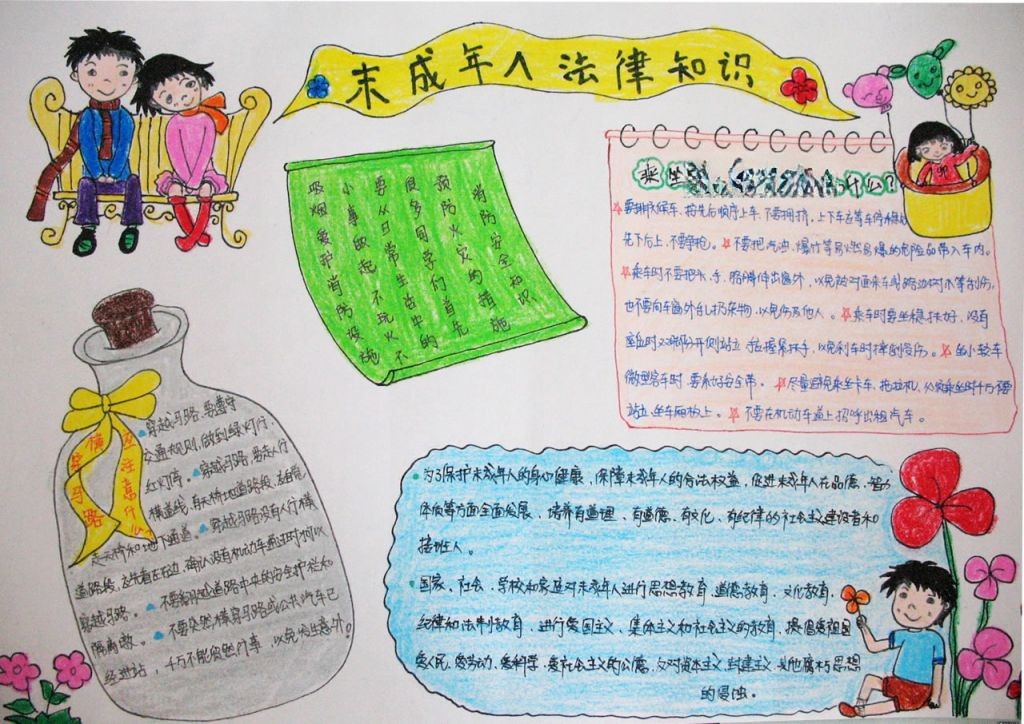 未成年人法律知识
消防安全知识
预防火灾的措施
很多同学们首先
要从日常生活中的
小事做起 不玩火 不
吸烟 爱护消防设施
乘坐 什么?
要排队候车,按先后顺序上车,不要拥挤,上下车应等车停稳
先下后上,不要争抢。不要把汽油、爆竹等易燃易爆的危险品带入车内。
乘车时不要把头、手、胳膊伸出窗外,以免被对面来车或路边树木等刮伤,
也不要向车窗外乱扔杂物,以免伤及他人。乘车时要坐稳扶好,没有
座位时,双脚 分开侧站立,手应握紧扶手,以免刹车时摔倒受伤。坐小轿车
微型客车时,要系好安全带。尽量避免乘坐卡车、拖拉机,必须乘坐时,千万不要
站立、坐车厢板上。不要在机动车道上招呼出租汽车。
横穿马路
应注意什么
穿越马路,要遵守
交通规则,做到绿灯行,
红灯停。穿越马路,要走人行
横道线,有天桥地道路段,应自觉
走天桥和地下通道。穿越马路没有人行横
道路段,应先看左右边,确认没有机动车通过时才可以
穿越马路。不要翻越道路中央的安全护栏和
隔离墩。不要突然横穿马路或公共汽车已
经进站,千万不能贸然行事,以免发生意外。
为了保护未成年人的身心健康,保障未成年人的合法权益,促进未成年人在品德、智力
体质等方面全面发展,培养有道理、有道德、有文化、有纪律的社会主义建设者和
接班人。
国家、社会、学校和家庭对未成年人进行思想教育、道德教育、文化教育、
纪律和法制教育,进行爱国主义、集体主义和社会主义的教育,提倡爱祖国
爱人民、爱劳动、爱科学、爱社会主义的公德,反对资本主义、封建主义、其他腐朽思想
的侵蚀。